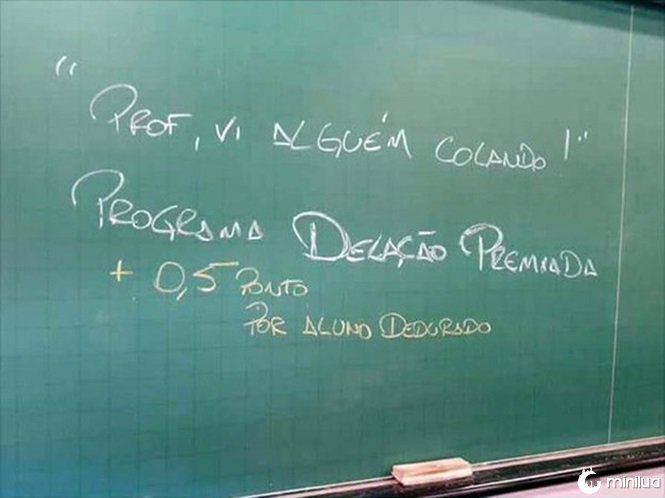 "PROF, VI ALGUÉM COLANDO!"
PROGRAMA DELAÇÃO PREMIADA
+ 0,5 PONTO
POR ALUNO DEDURADO
minilua